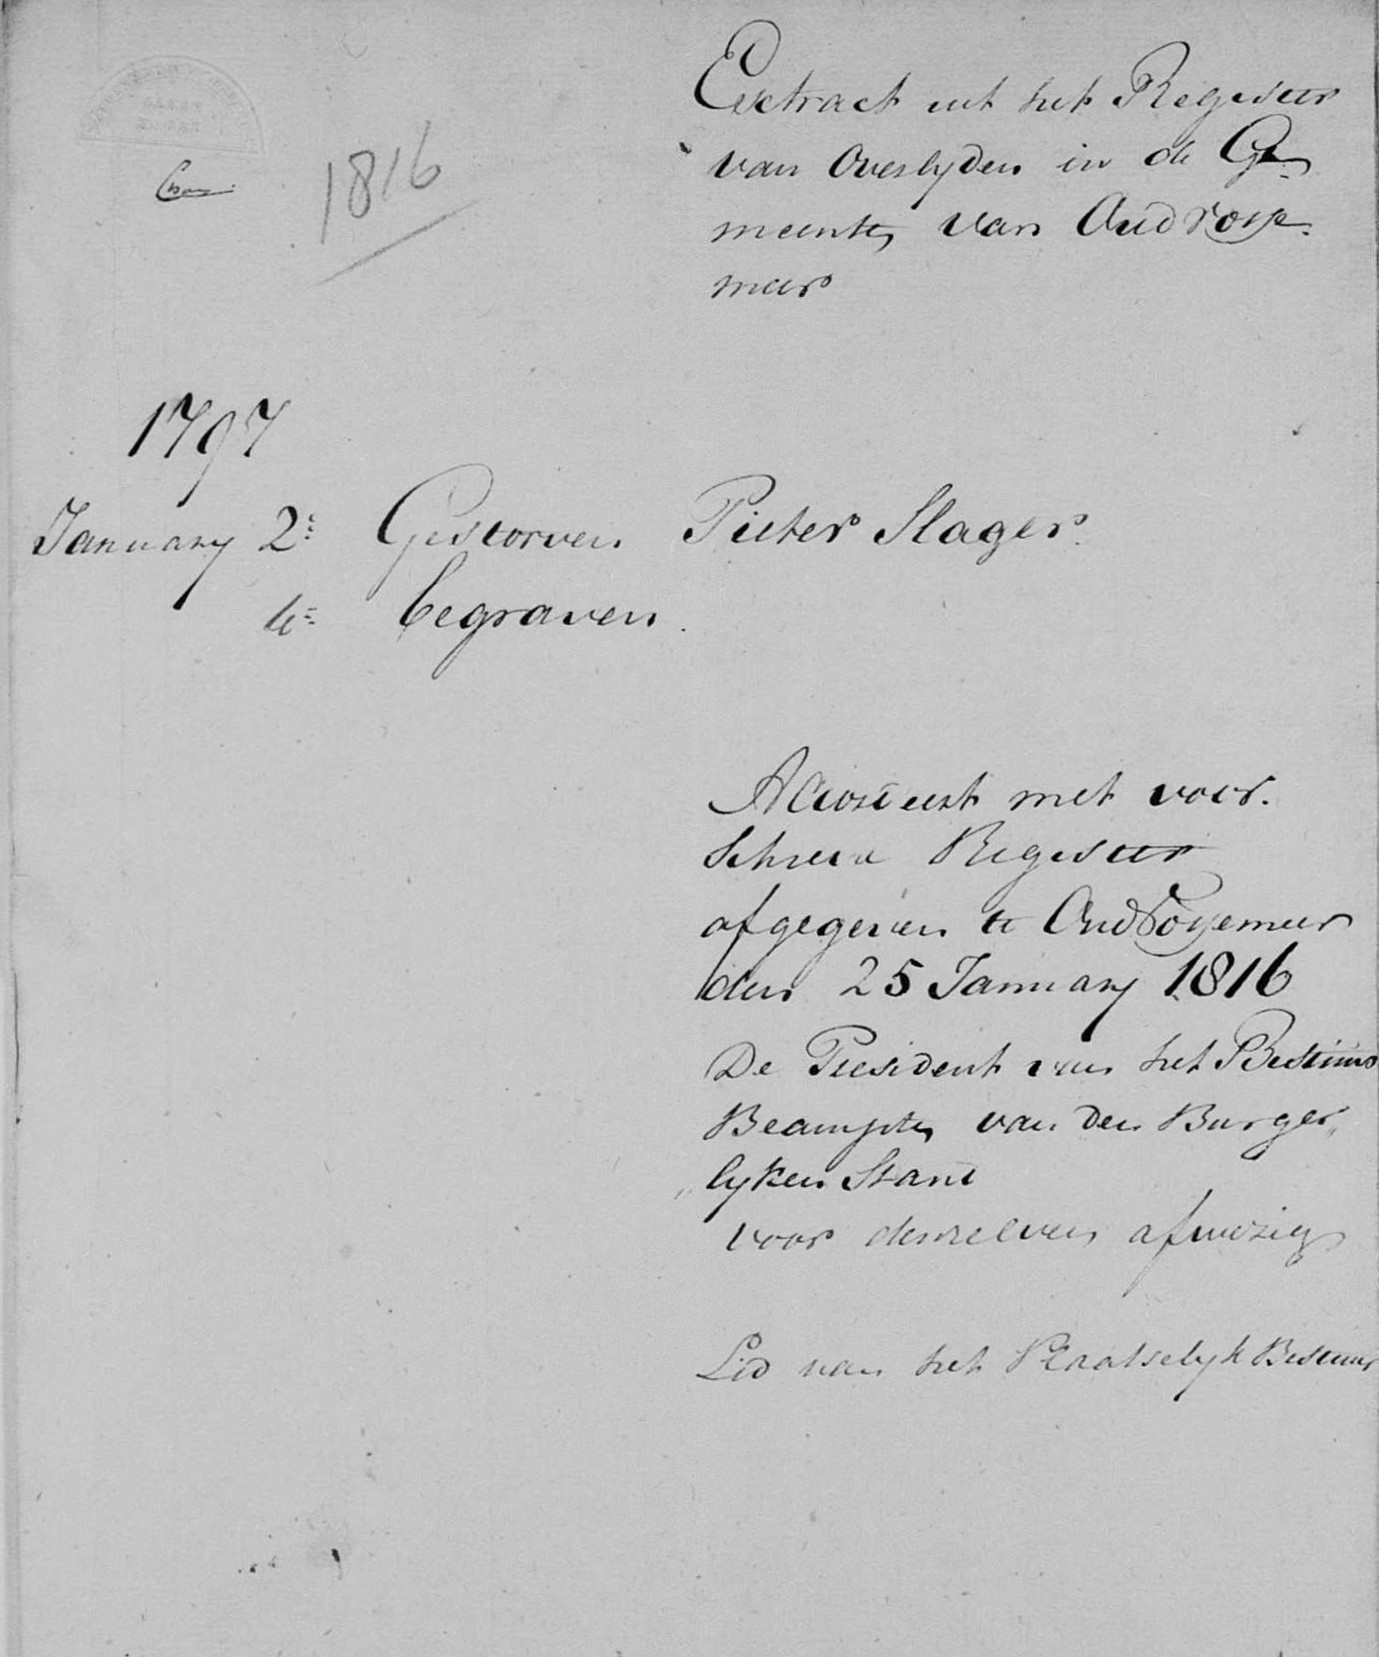 Extract uit het Register
van Overlyden in de Ge-
meente van Oudvosse-
meer
1816
1797
January 2e Gestorven Pieter Slager.
4e begraven.
Accordeert met voor-
schreve Register
afgegeven te Oudvossemeer
den 25 January 1816
De President van het Bestuur
Beampte van den Burger„
„lyken Stand
voor denzelven afwezig
Lid van het Plaatselyk Bestuur